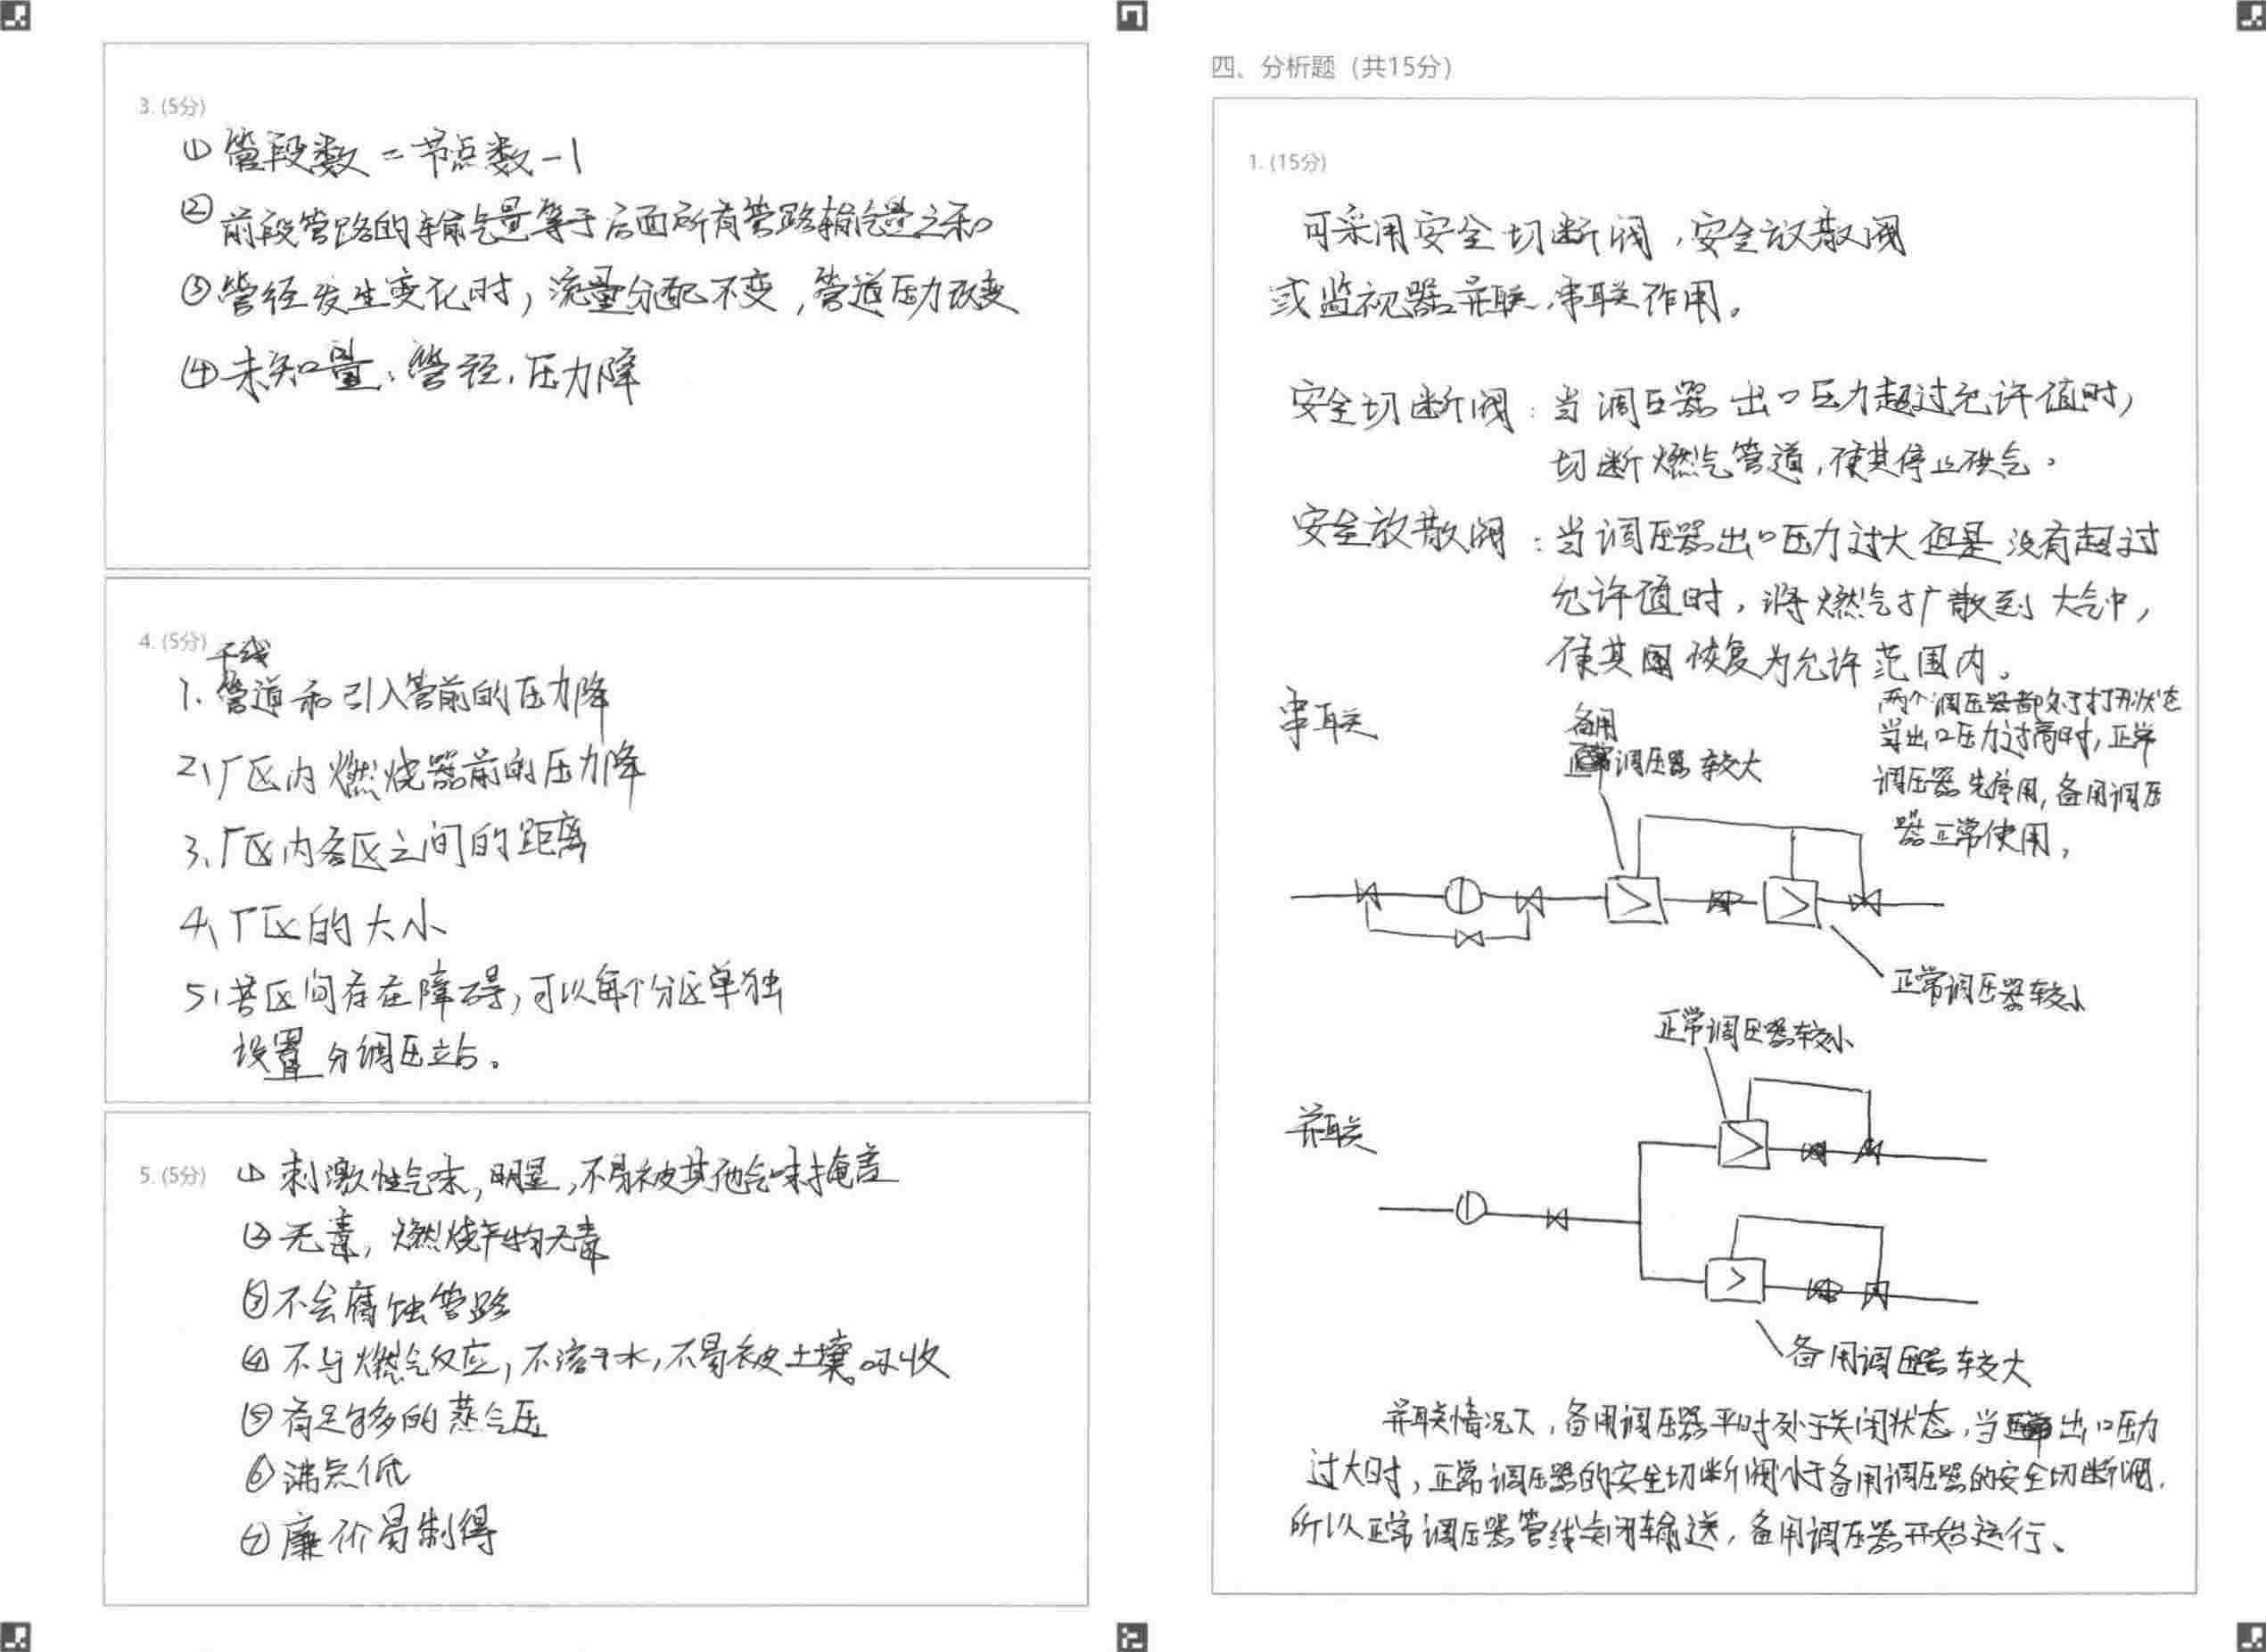 3. (5分)
① 管段数 = 节点数 - 1
② 前段管路的输气量等于后面所有管路输气量之和。
③ 管径发生变化时，流量分配不变，管道压力改变
④ 未知量：管径、压力降
4. (5分)
干线
1、管道和引入管前的压力降
2、厂区内燃烧器前的压力降
3、厂区内各区之间的距离
4、厂区的大小
5、若区间存在障碍，可以每个分区单独
设置分调压站。
5. (5分) ① 刺激性气味，明显，不易被其他气味掩盖
② 无毒，燃烧产物无毒
③ 不会腐蚀管路
④ 不与燃气反应，不溶于水，不易被土壤吸收
⑤ 有足够多的蒸气压
⑥ 沸点低
⑦ 廉价易制得
四、分析题（共15分）
1. (15分)
可采用安全切断阀，安全放散阀
或监视器并联、串联作用。
安全切断阀：当调压器出口压力超过允许值时，
切断燃气管道，使其停止供气。
安全放散阀：当调压器出口压力过大但是没有超过
允许值时，将燃气扩散到大气中，
使其恢复为允许范围内。
串联
备用
调压器较大
两个调压器都处于打开状态
当出口压力过高时，正常
调压器先停用，备用调压
器正常使用，
正常调压器较小
正常调压器较小
并联
备用调压器较大
并联情况下，备用调压器平时处于关闭状态，当出口压力
过大时，正常调压器的安全切断阀小于备用调压器的安全切断阀，
所以正常调压器管线关闭输送，备用调压器开始运行、